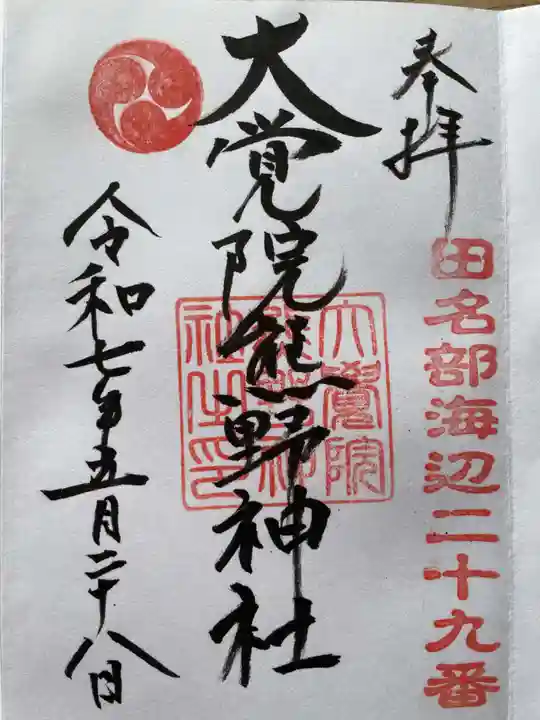 奉拝
田名部海辺二十九番
大覚院熊野神社
大覺院熊野神社之印
令和七年五月二十八日